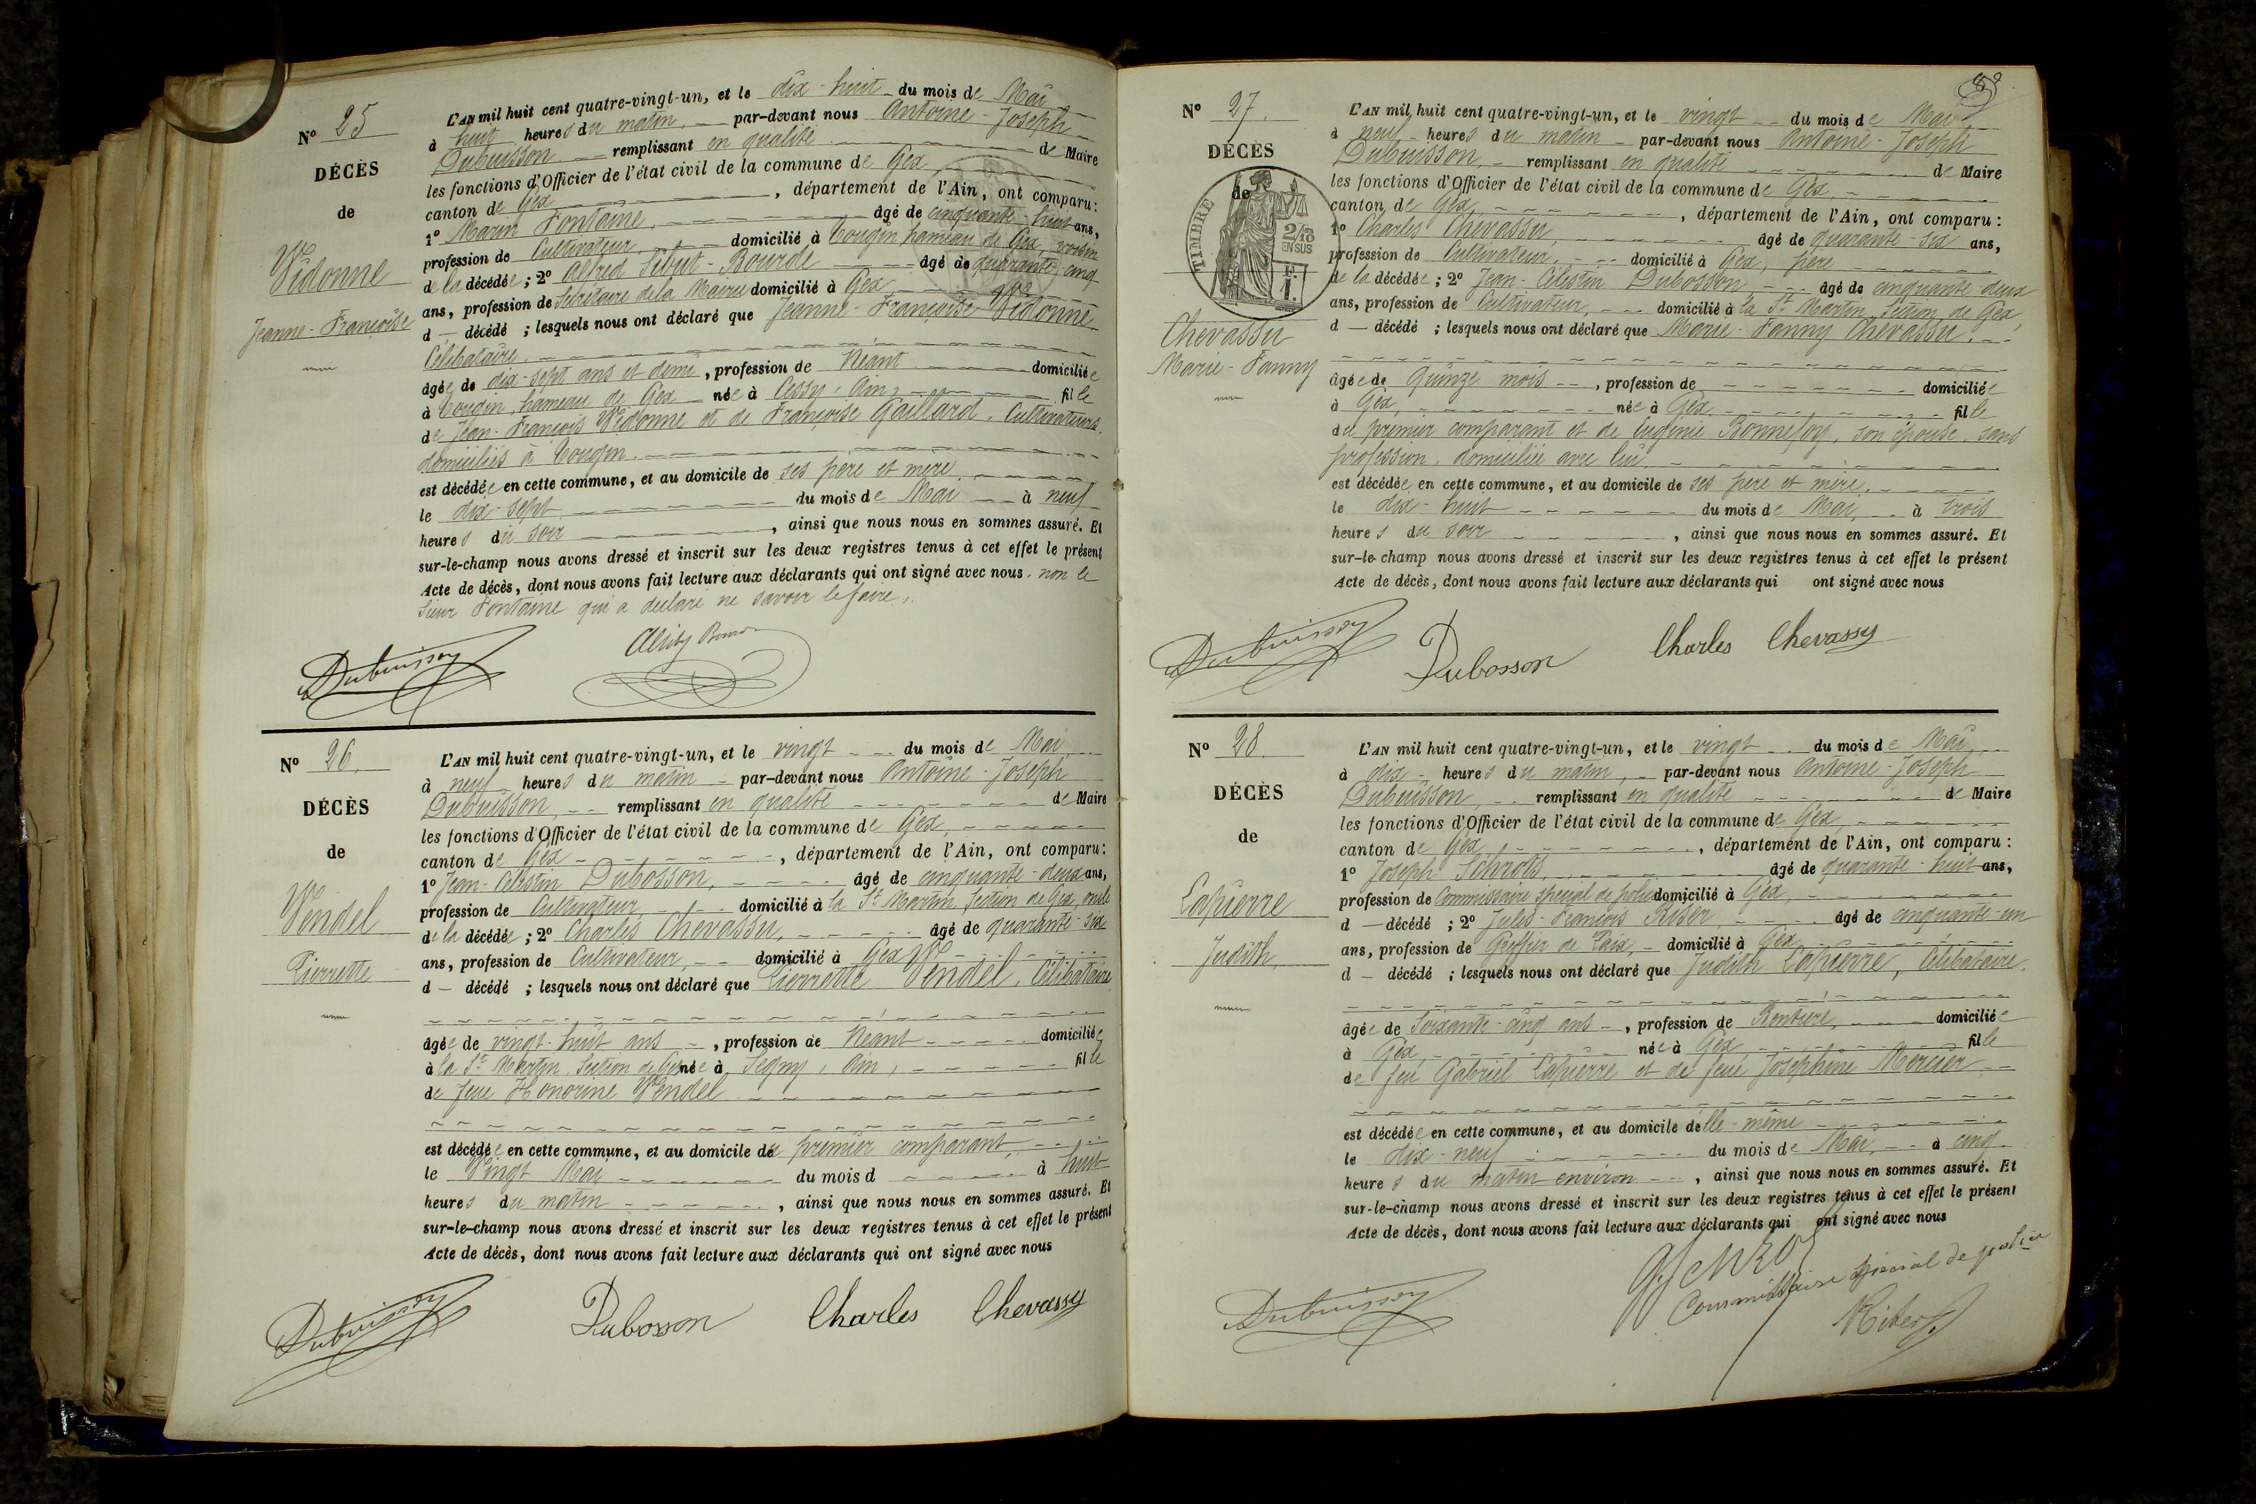 Nº 25
DÉCÈS
de
Vidonne
Jeanne-Françoise
L'AN mil huit cent quatre-vingt-un, et le dix-huit du mois de Mai
à huit heures du matin par-devant nous Antoine-Joseph
Dubuisson remplissant en qualité de Maire
les fonctions d'Officier de l'état civil de la commune de Gex
canton de Gex, département de l'Ain, ont comparu:
1º Marin Fontaine, âgé de cinquante-huit ans,
profession de Cultivateur, domicilié à Tougin hameau de Gex, voisin
de la décédée; 2º Alfred Sibut-Bourde âgé de quarante-cinq
ans, profession de Secrétaire de la Mairie domicilié à Gex
d — décédé ; lesquels nous ont déclaré que Jeanne-Françoise Vidonne
Célibataire
âgée de dix-sept ans et demi, profession de Néant domiciliée
à Tougin, hameau de Gex née à Cessy, Ain, fille
de Jean-François Vidonne et de Françoise Gaillard, Cultivateurs,
domiciliés à Tougin.
est décédée en cette commune, et au domicile de ses père et mère,
le dix-sept du mois de Mai à neuf
heures du soir, ainsi que nous nous en sommes assuré. Et
sur-le-champ nous avons dressé et inscrit sur les deux registres tenus à cet effet le présent
Acte de décès, dont nous avons fait lecture aux déclarants qui ont signé avec nous. non le
Sieur Fontaine qui a déclaré ne savoir le faire.
Dubuisson
Nº 26
DÉCÈS
de
Vendel
Pierrette
L'AN mil huit cent quatre-vingt-un, et le vingt du mois de Mai,
à neuf heures du matin par-devant nous Antoine-Joseph
Dubuisson, remplissant en qualité de Maire
les fonctions d'Officier de l'état civil de la commune de Gex,
canton de Gex, département de l'Ain, ont comparu:
1º Jean-Célestin Dubosson, âgé de cinquante-deux ans,
profession de Cultivateur, domicilié à la St Martin, Section de Gex, oncle
de la décédée; 2º Charles Chevassu, âgé de quarante-six
ans, profession de Cultivateur, domicilié à Gex
d — décédé ; lesquels nous ont déclaré que Pierrette Vendel, Célibataire
âgée de vingt-huit ans, profession de Néant domiciliée
à la St Martin, Section de Gex née à Segny, Ain, fille
de feue Honorine Vendel
est décédée en cette commune, et au domicile du premier comparant,
le Vingt Mai du mois d à huit
heures du matin, ainsi que nous nous en sommes assuré. Et
sur-le-champ nous avons dressé et inscrit sur les deux registres tenus à cet effet le présent
Acte de décès, dont nous avons fait lecture aux déclarants qui ont signé avec nous
Dubuisson Dubosson Charles Chevassu
Nº 27.
DÉCÈS
de
TIMBRE
2/10
EN SUS
Chevassu
Marie-Fanny
L'AN mil huit cent quatre-vingt-un, et le vingt du mois de Mai
à neuf heures du matin par-devant nous Antoine-Joseph
Dubuisson, remplissant en qualité de Maire
les fonctions d'Officier de l'état civil de la commune de Gex,
canton de Gex, département de l'Ain, ont comparu:
1º Charles Chevassu, âgé de quarante-six ans,
profession de Cultivateur, domicilié à Gex, père
de la décédée; 2º Jean-Célestin Dubosson, âgé de cinquante-deux
ans, profession de Cultivateur, domicilié à la St Martin, Section de Gex,
d — décédé ; lesquels nous ont déclaré que Marie-Fanny Chevassu,
âgée de Quinze mois, profession de domiciliée
à Gex, née à Gex fille
du premier comparant et de Eugénie Bonnefoy, son épouse, sans
profession, domiciliée avec lui,
est décédée en cette commune, et au domicile de ses père et mère,
le dix-huit du mois de Mai, à trois
heures du soir, ainsi que nous nous en sommes assuré. Et
sur-le-champ nous avons dressé et inscrit sur les deux registres tenus à cet effet le présent
Acte de décès, dont nous avons fait lecture aux déclarants qui ont signé avec nous
Dubuisson Dubosson Charles Chevassu
Nº 28.
DÉCÈS
de
Lapierre
Judith
L'AN mil huit cent quatre-vingt-un, et le vingt du mois de Mai,
à dix heures du matin, par-devant nous Antoine-Joseph
Dubuisson, remplissant en qualité de Maire
les fonctions d'Officier de l'état civil de la commune de Gex,
canton de Gex, département de l'Ain, ont comparu:
1º Joseph âgé de quarante-huit ans,
profession de Commissaire spécial de police domicilié à Gex,
d — décédé ; 2º Jules-François âgé de cinquante-un
ans, profession de Greffier de Paix, domicilié à Gex
d — décédé ; lesquels nous ont déclaré que Judith Lapierre, Célibataire,
âgée de Soixante-cinq ans, profession de Rentière, domiciliée
à Gex née à Gex fille
de feu Gabriel Lapierre et de feue Joséphine Mercier
est décédée en cette commune, et au domicile d'elle-même
le dix-neuf du mois de Mai, à cinq
heures du matin environ, ainsi que nous nous en sommes assuré. Et
sur-le-champ nous avons dressé et inscrit sur les deux registres tenus à cet effet le présent
Acte de décès, dont nous avons fait lecture aux déclarants qui ont signé avec nous
Dubuisson
Commissaire spécial de police